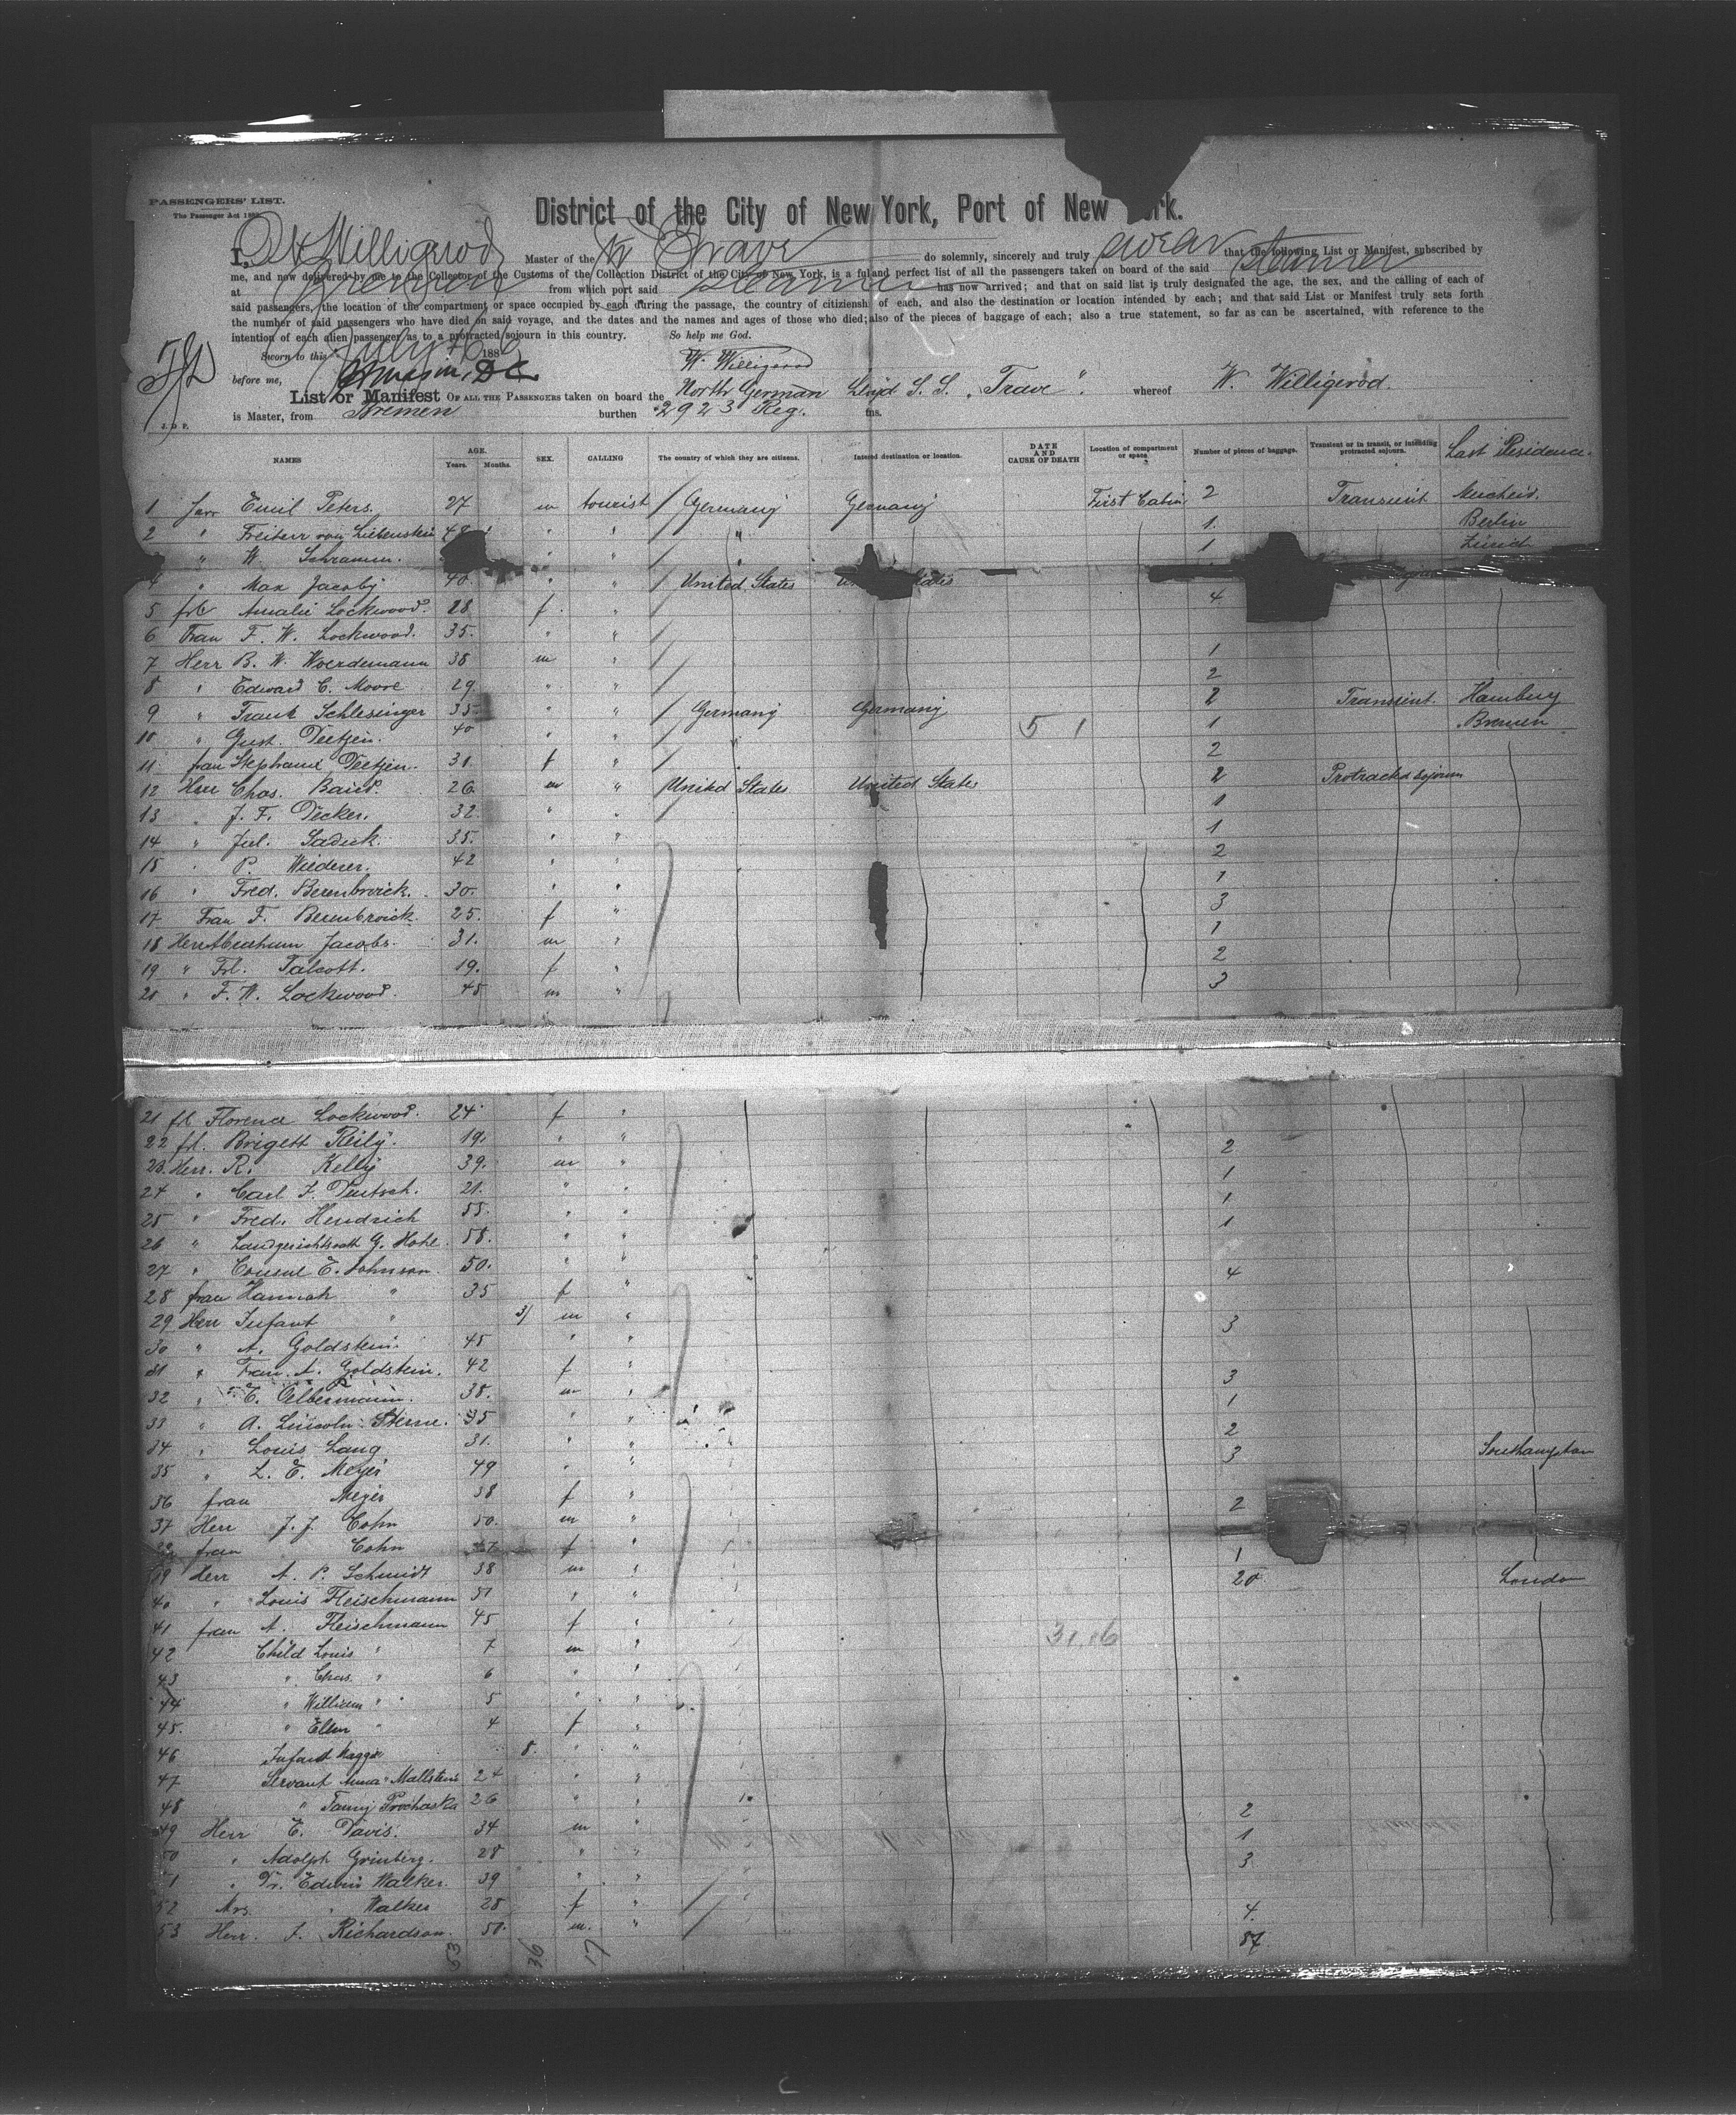 PASSENGERS' LIST.
The Passenger Act 188
District of the City of New York, Port of New York.
I, W Willigerod Master of the Trave do solemnly, sincerely and truly swear that the following List or Manifest, subscribed by
me, and now delivered by me to the Collector of the Customs of the Collection District of the City of New York, is a full and perfect list of all the passengers taken on board of the said steamer
at Bremen from which port said steamer has now arrived; and that on said list is truly designated the age, the sex, and the calling of each of
said passengers, the location of the compartment or space occupied by each during the passage, the country of citizenship of each, and also the destination or location intended by each; and that said List or Manifest truly sets forth
the number of said passengers who have died on said voyage, and the dates and the names and ages of those who died; also of the pieces of baggage of each; also a true statement, so far as can be ascertained, with reference to the
intention of each alien passenger as to a protracted sojourn in this country. So help me God.
Sworn to this July 188
W. Willigerod
before me,
List or Manifest OF ALL THE PASSENGERS taken on board the North German Lloyd S. S. "Trave". whereof W. Willigerod.
is Master, from Bremen burthen 2923 Reg. tns.
J. D. P.
NAMES AGE. Years. Months. SEX. CALLING The country of which they are citizens. Intended destination or location. DATE AND CAUSE OF DEATH Location of compartment or space Number of pieces of baggage. Transient or in transit, or intending protracted sojourn. Last Residence.
1 Herr Emil Peters. 27 m tourist Germany Germany First Cabin 2 Transient
2 " Freiherr von Liebenstein 48 " " " 1. Berlin
" W. Schramm. " " " 1
4 " Max Jacoby 40. " " United States States
5 frl Amalie Lockwood. 28. f. " 4
6 Frau F. W. Lockwood. 35. " "
7 Herr B. W. Woerdemann 38 m " 1
8 " Edward C. Moore 29 " " 2
9 " Frank Schlesinger 35 " " Germany Germany 2 Transient. Hamburg
10 " Gust. Deetjen. 40 " " " 51 1 Bremen
11 frau Stephanie Deetjen. 31. f " 2
12 Herr Chas. Baird. 26 m " United States United States 2 Protracted sojourn
13 " J. F. Decker. 32. " " 1
14 " Jul. Sadick. 35. " " 1
15 " P. Wiederer. 42 " " 2
16 " Fred. Berenbroick. 30. " " 1
17 Frau F. Berenbroick. 25. f " 3
18 Herr Abraham Jacobs. 31. m " 1
19 " Frl. Talcott. 19. f " 2
20 " F. W. Lockwood. 48 m " 3
21 frl Florence Lockwood. 24 f "
22 frl. Brigett Reily. 19. " " 2
23. Herr. R. Kelly 39. m " 1
24 " Carl F. Deutsch. 21. " " 1
25 " Fred. Hendrich 55. " " 1
26 " Landgerichtsrath G. Hohl. 58. " "
27 " Consul E. Johnson 50. " " 4
28 frau Hannah " 35 f "
29 Herr Infant " 3/ m " 3
30 " A. Goldstein. 48 " "
31 " Frau A. Goldstein. 42 f " 3
32 " E. Oelbermann. 38. m " 1
33 " A. Lincoln Sterne. 35 " " 2
34 " Louis Lang 31. " " 3 Southampton
35 " L. E. Meyer 49 " "
36 frau Meyer 38 f " 2
37 Herr J. J. Cohn 50. m "
frau Cohn f " 1
39 Herr A. P. Schmidt 38 m " 20 London
40 " Louis Fleischmann 51 " "
41 frau A. Fleischmann 45 f "
42 Child Louis " 7 m "
43 " Chas. " 6 " "
44 " William " 5 " "
45. " Ellen " 4 f "
46 Infant 8. " "
47 Servant Anna 24 " "
48 " Fanny Prochaska 26 " " 2
49 Herr E. Davis. 34 m " 1
50 " Adolph Grinberg. 28 " " 3
51 " Dr. Edwin Walker. 39 " "
52 Mrs. " Walker 28 f " 4.
53 Herr. J. Richardson. 50. m. "
53 36 17 87